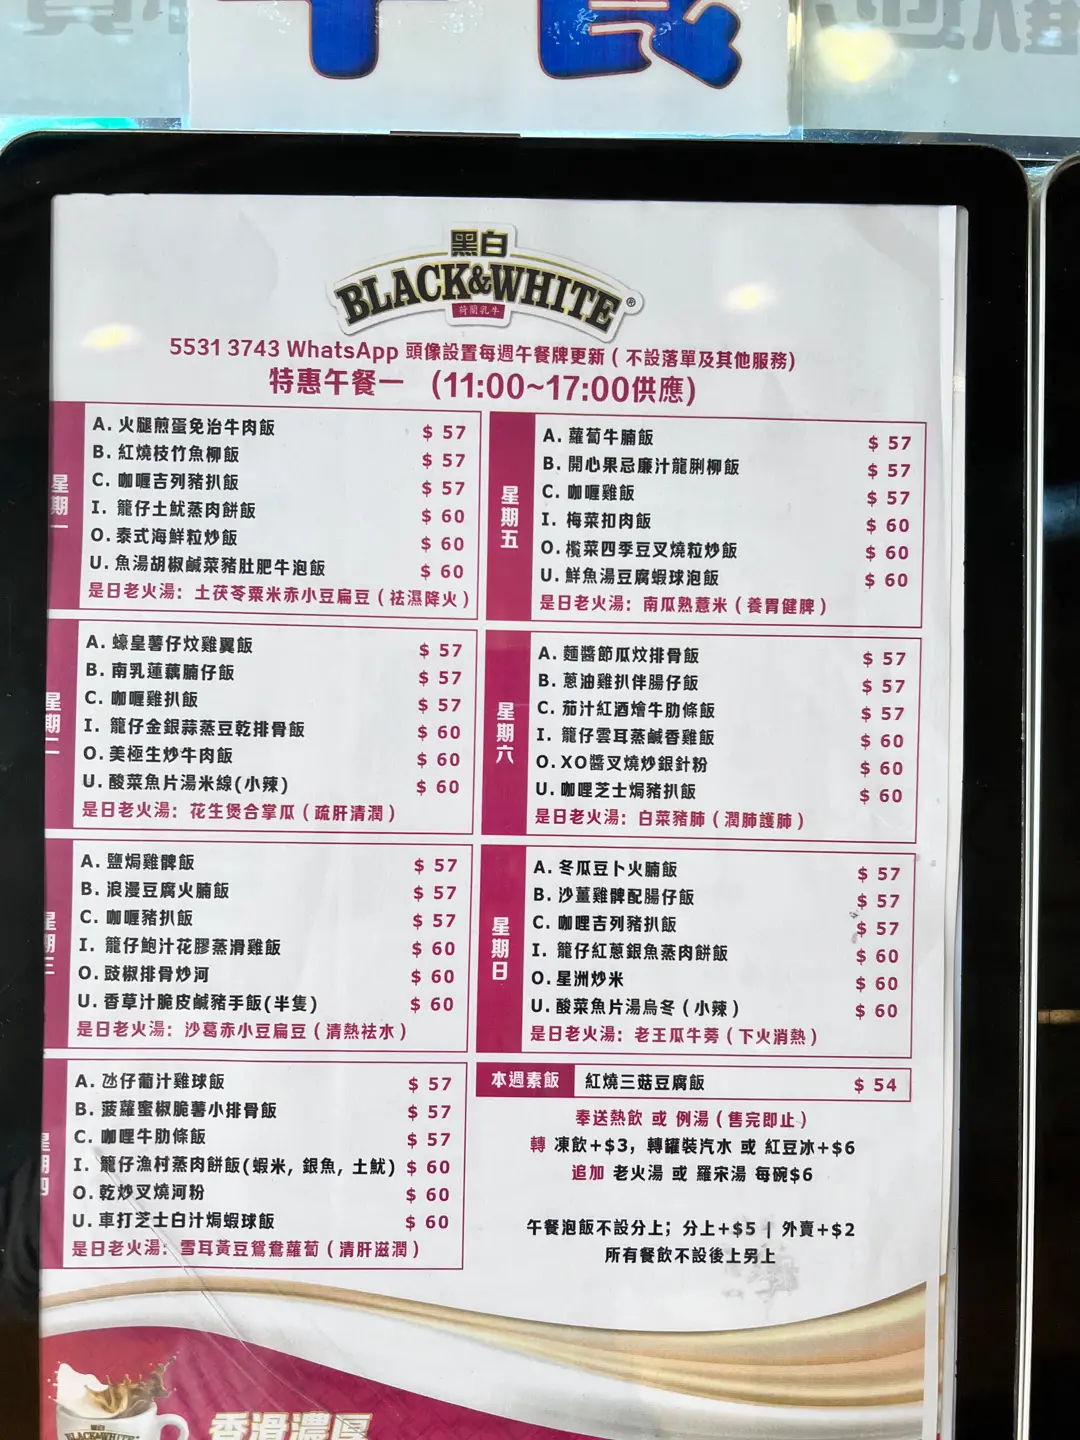 黑白
BLACK&WHITE®
荷蘭乳牛
5531 3743 WhatsApp 頭像設置每週午餐牌更新 ( 不設落單及其他服務)
特惠午餐一 (11:00~17:00供應)
星期一
A. 火腿煎蛋免治牛肉飯 $ 57
B. 紅燒枝竹魚柳飯 $ 57
C. 咖喱吉列豬扒飯 $ 57
I. 籠仔土魷蒸肉餅飯 $ 60
O. 泰式海鮮粒炒飯 $ 60
U. 魚湯胡椒鹹菜豬肚肥牛泡飯 $ 60
是日老火湯: 土茯苓粟米赤小豆扁豆 ( 祛濕降火 )
星期二
A. 蠔皇薯仔炆雞翼飯 $ 57
B. 南乳蓮藕腩仔飯 $ 57
C. 咖喱雞扒飯 $ 57
I. 籠仔金銀蒜蒸豆乾排骨飯 $ 60
O. 美極生炒牛肉飯 $ 60
U. 酸菜魚片湯米線(小辣) $ 60
是日老火湯: 花生煲合掌瓜 ( 疏肝清潤 )
星期三
A. 鹽焗雞髀飯 $ 57
B. 浪漫豆腐火腩飯 $ 57
C. 咖喱豬扒飯 $ 57
I. 籠仔鮑汁花膠蒸滑雞飯 $ 60
O. 豉椒排骨炒河 $ 60
U. 香草汁脆皮鹹豬手飯(半隻) $ 60
是日老火湯: 沙葛赤小豆扁豆 ( 清熱祛水 )
星期四
A. 氹仔葡汁雞球飯 $ 57
B. 菠蘿蜜椒脆薯小排骨飯 $ 57
C. 咖哩牛肋條飯 $ 57
I. 籠仔漁村蒸肉餅飯(蝦米, 銀魚, 土魷) $ 60
O. 乾炒叉燒河粉 $ 60
U. 車打芝士白汁焗蝦球飯 $ 60
是日老火湯: 雪耳黃豆鴛鴦蘿蔔 ( 清肝滋潤 )
星期五
A. 蘿蔔牛腩飯 $ 57
B. 開心果忌廉汁龍脷柳飯 $ 57
C. 咖喱雞飯 $ 57
I. 梅菜扣肉飯 $ 60
O. 欖菜四季豆叉燒粒炒飯 $ 60
U. 鮮魚湯豆腐蝦球泡飯 $ 60
是日老火湯: 南瓜熟薏米 ( 養胃健脾 )
星期六
A. 麵醬節瓜炆排骨飯 $ 57
B. 蔥油雞扒伴腸仔飯 $ 57
C. 茄汁紅酒燴牛肋條飯 $ 57
I. 籠仔雲耳蒸鹹香雞飯 $ 60
O. XO醬叉燒炒銀針粉 $ 60
U. 咖哩芝士焗豬扒飯 $ 60
是日老火湯: 白菜豬肺 ( 潤肺護肺 )
星期日
A. 冬瓜豆卜火腩飯 $ 57
B. 沙薑雞髀配腸仔飯 $ 57
C. 咖哩吉列豬扒飯 $ 57
I. 籠仔紅蔥銀魚蒸肉餅飯 $ 60
O. 星洲炒米 $ 60
U. 酸菜魚片湯烏冬 ( 小辣 ) $ 60
是日老火湯: 老王瓜牛蒡 ( 下火消熱 )
本週素飯 紅燒三菇豆腐飯 $ 54
奉送熱飲 或 例湯 ( 售完即止 )
轉 凍飲+$3, 轉罐裝汽水 或 紅豆冰+$6
追加 老火湯 或 羅宋湯 每碗$6
午餐泡飯不設分上; 分上+$5 | 外賣+$2
所有餐飲不設後上另上
黑白
BLACK&WHITE
香滑濃厚